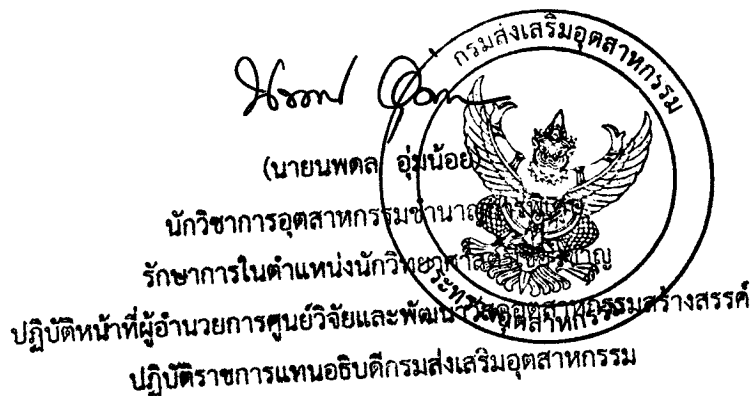 กรมส่งเสริมอุตสาหกรรม
(นายนพดล อุ่มน้อย)
นักวิชาการอุตสาหกรรมชำนาญการพิเศษ
รักษาการในตำแหน่งนักวิทยาศาสตร์เชี่ยวชาญ
ปฏิบัติหน้าที่ผู้อำนวยการศูนย์วิจัยและพัฒนาวัสดุอุตสาหกรรมสร้างสรรค์
กระทรวงอุตสาหกรรม
ปฏิบัติราชการแทนอธิบดีกรมส่งเสริมอุตสาหกรรม